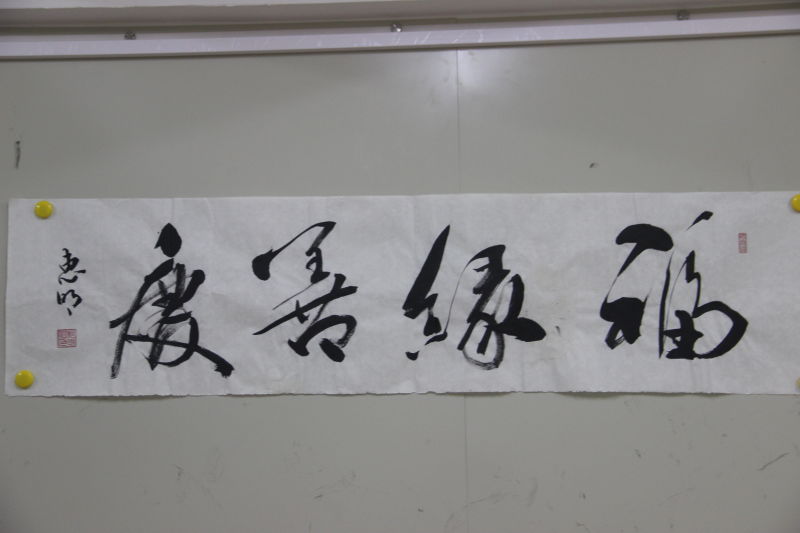 福緣善慶
惠明